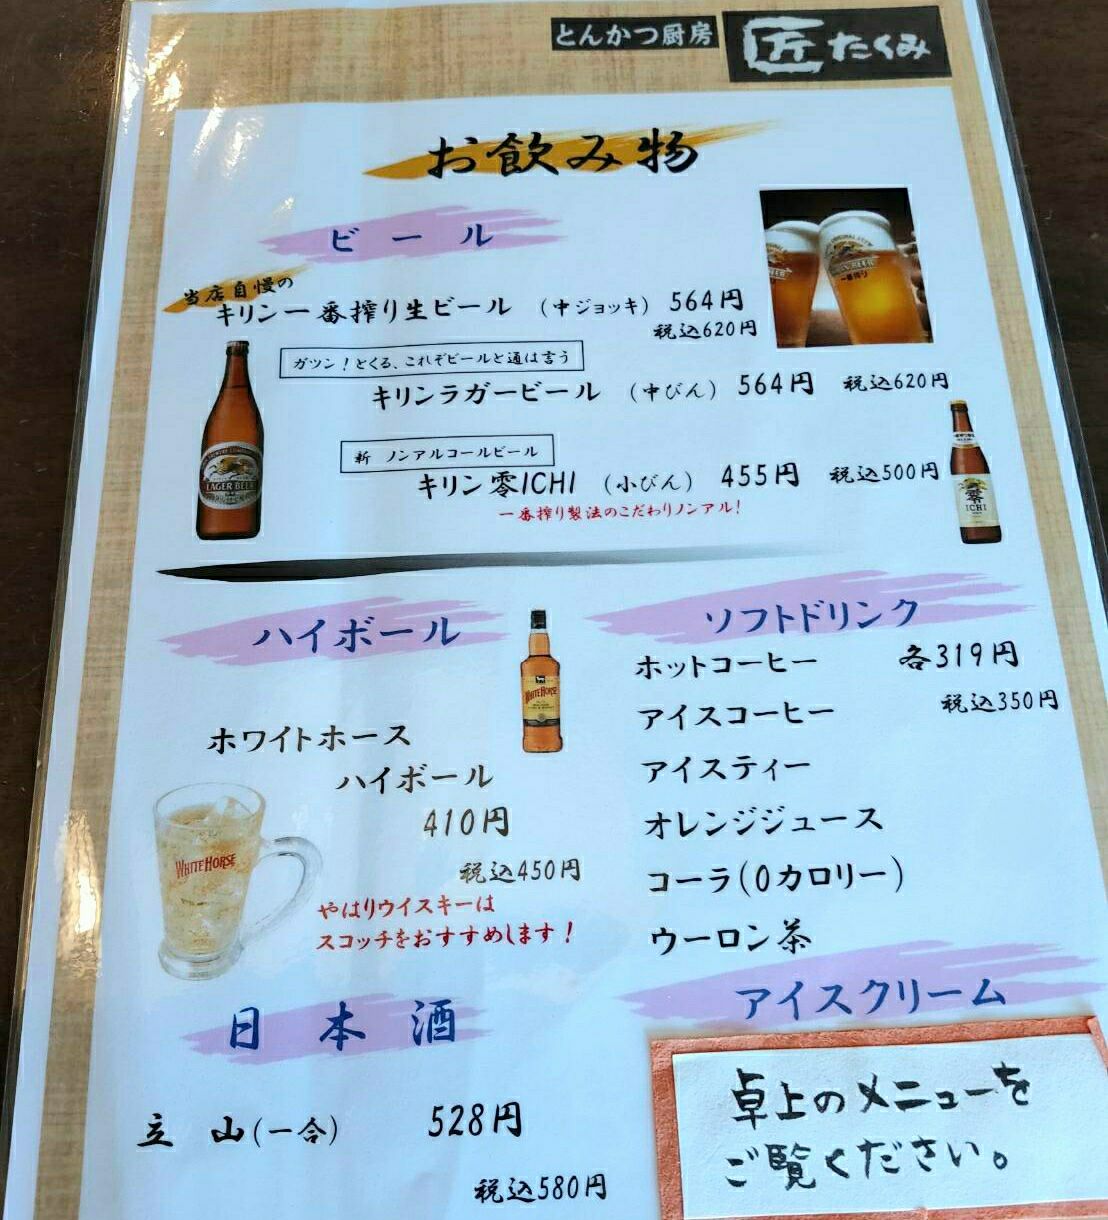 とんかつ厨房 匠 たくみ
お飲み物
ビール
当店自慢の
キリン一番搾り生ビール (中ジョッキ) 564円
税込620円
ガツン!とくる、これぞビールと通は言う
キリンラガービール (中びん) 564円 税込620円
LAGER BEER
新 ノンアルコールビール
キリン零ICHI (小びん) 455円 税込500円
一番搾り製法のこだわりノンアル!
零
ICHI
ハイボール
WHITE HORSE
ホワイトホース
ハイボール
410円
税込450円
WHITE HORSE
やはりウイスキーは
スコッチをおすすめします!
日本酒
立山(一合) 528円
税込580円
ソフトドリンク
ホットコーヒー 各319円
税込350円
アイスコーヒー
アイスティー
オレンジジュース
コーラ(0カロリー)
ウーロン茶
アイスクリーム
卓上のメニューを
ご覧ください。